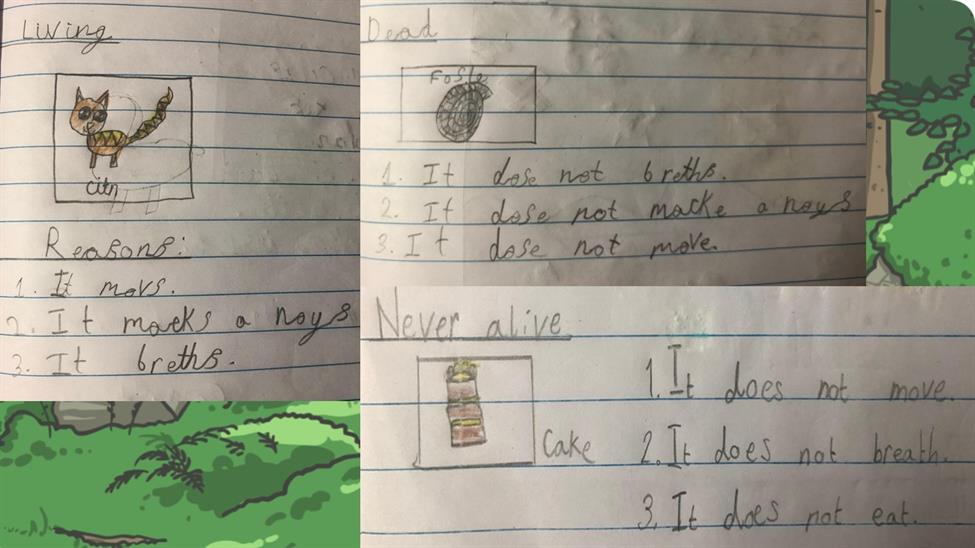 Living
Reasons:
1. It movs.
2. It macks a noys
3. It breths.
Dead
1. It dose not breths.
2. It dose not macke a noys
3. It dose not move.
Never alive
Cake
1. It does not move.
2. It does not breath.
3. It does not eat.